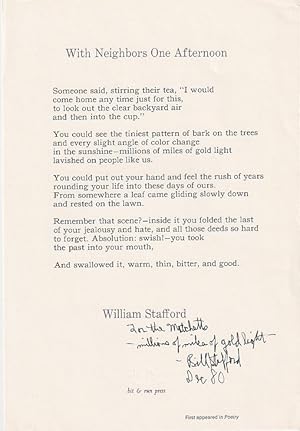 With Neighbors One Afternoon
Someone said, stirring their tea, "I would
come home any time just for this,
to look out the clear backyard air
and then into the cup."
You could see the tiniest pattern of bark on the trees
and every slight angle of color change
in the sunshine—millions of miles of gold light
lavished on people like us.
You could put out your hand and feel the rush of years
rounding your life into these days of ours.
From somewhere a leaf came gliding slowly down
and rested on the lawn.
Remember that scene?—inside it you folded the last
of your jealousy and hate, and all those deeds so hard
to forget. Absolution: swish!—you took
the past into your mouth,
And swallowed it, warm, thin, bitter, and good.
William Stafford
For the
—millions of miles of gold light—
— Bill Stafford
Dec 80
hit & run press
First appeared in Poetry